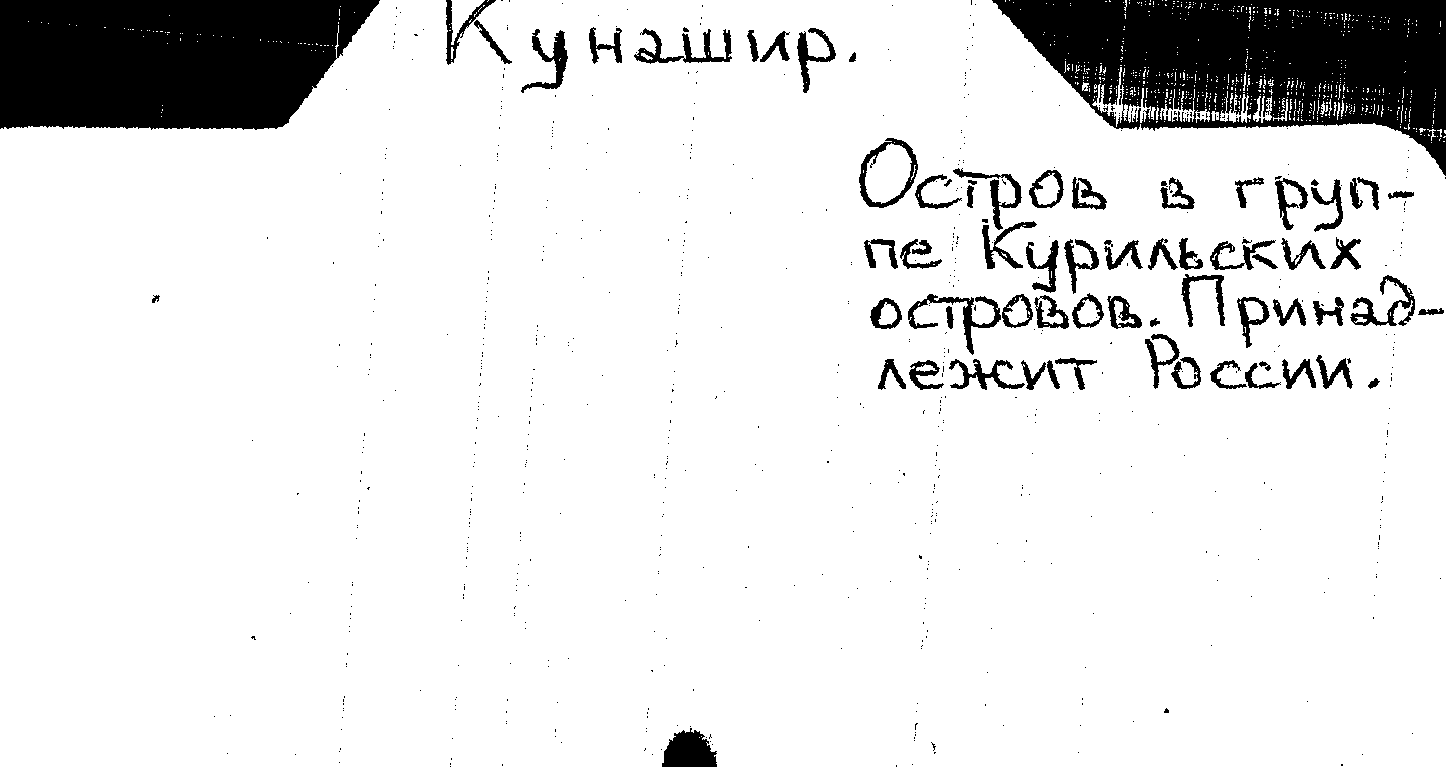 Кунашир.
Остров в груп-
пе Курильских
островов. Принад-
лежит России.